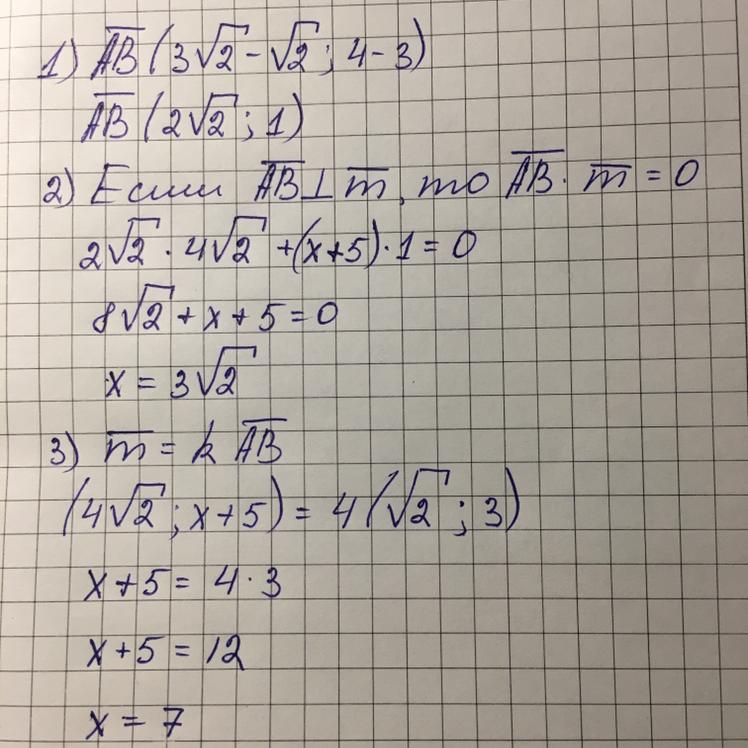 1) A̅B̅ (3√2 - √2 ; 4 - 3)
A̅B̅ (2√2 ; 1)
2) Если A̅B̅ ⊥ m̅, то A̅B̅ · m̅ = 0
2√2 · 4√2 + (x+5) · 1 = 0
8√2 + x + 5 = 0
x = 3√2
3) m̅ = k A̅B̅
(4√2 ; x+5) = 4 (√2 ; 3)
x + 5 = 4 · 3
x + 5 = 12
x = 7